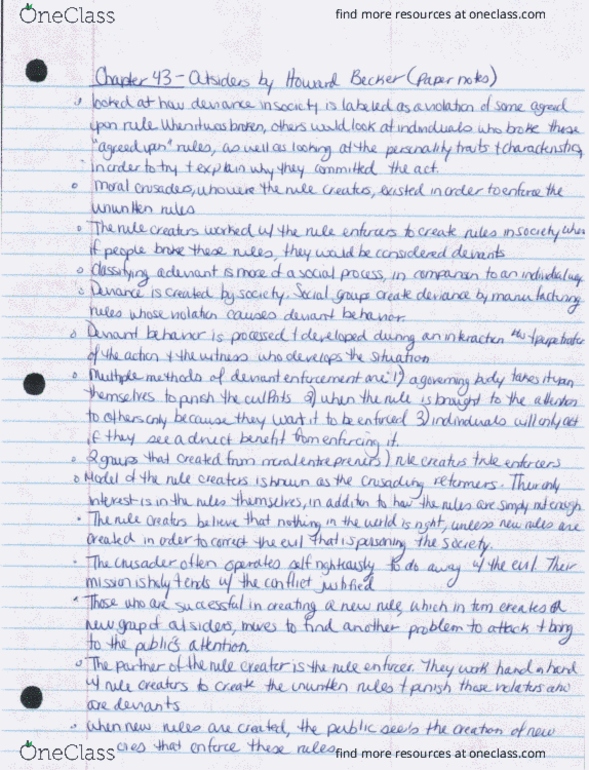 OneClass
find more resources at oneclass.com
Chapter 43 - Outsiders by Howard Becker (Paper notes)
looked at how deviance in society is labeled as a violation of some agreed
upon rule. When it was broken, others would look at individuals who broke these
"agreed upon" rules, as well as looking at the personality traits + characteristics,
in order to try + explain why they committed the act.
Moral crusaders, who were the rule creators, existed in order to enforce the
unwritten rules
The rule creators worked w/ the rule enforcers to create rules in society when
if people broke these rules, they would be considered deviants
Classifying a deviant is more of a social process, in comparison to an individual
Deviance is created by society. Social groups create deviance by manufacturing
rules whose violation causes deviant behavior.
Deviant behavior is processed + developed during an interaction b/w + perpetrator
of the action + the witness who develops the situation
Multiple methods of deviant enforcement are 1) a governing body takes it upon
themselves to punish the culprits 2) when the rule is brought to the attention
to others only because they want it to be enforced 3) individuals will only act
if they see a direct benefit from enforcing it.
2 groups that created from moral entrepreneurs) rule creators + rule enforcers
Model of the rule creators is known as the crusading reformers. Their only
interest is in the rules themselves, in addition to how the rules are simply not enough
The rule creators believe that nothing in the world is right, unless new rules are
created in order to correct the evil that is poisoning the society.
The crusader often operates self righteously to do away w/ the evil. Their
mission is holy + ends w/ the conflict justified
Those who are successful in creating a new rule, which in turn creates a
new group of outsiders, moves to find another problem to attack + bring
to the public's attention
The partner of the rule creator is the rule enforcer. They work hand n hand
w/ rule creators to create the unwritten rules + punish those violators who
are deviants
When new rules are created, the public seeks the creation of new
cies that enforce these rules
OneClass
find more resources at oneclass.com